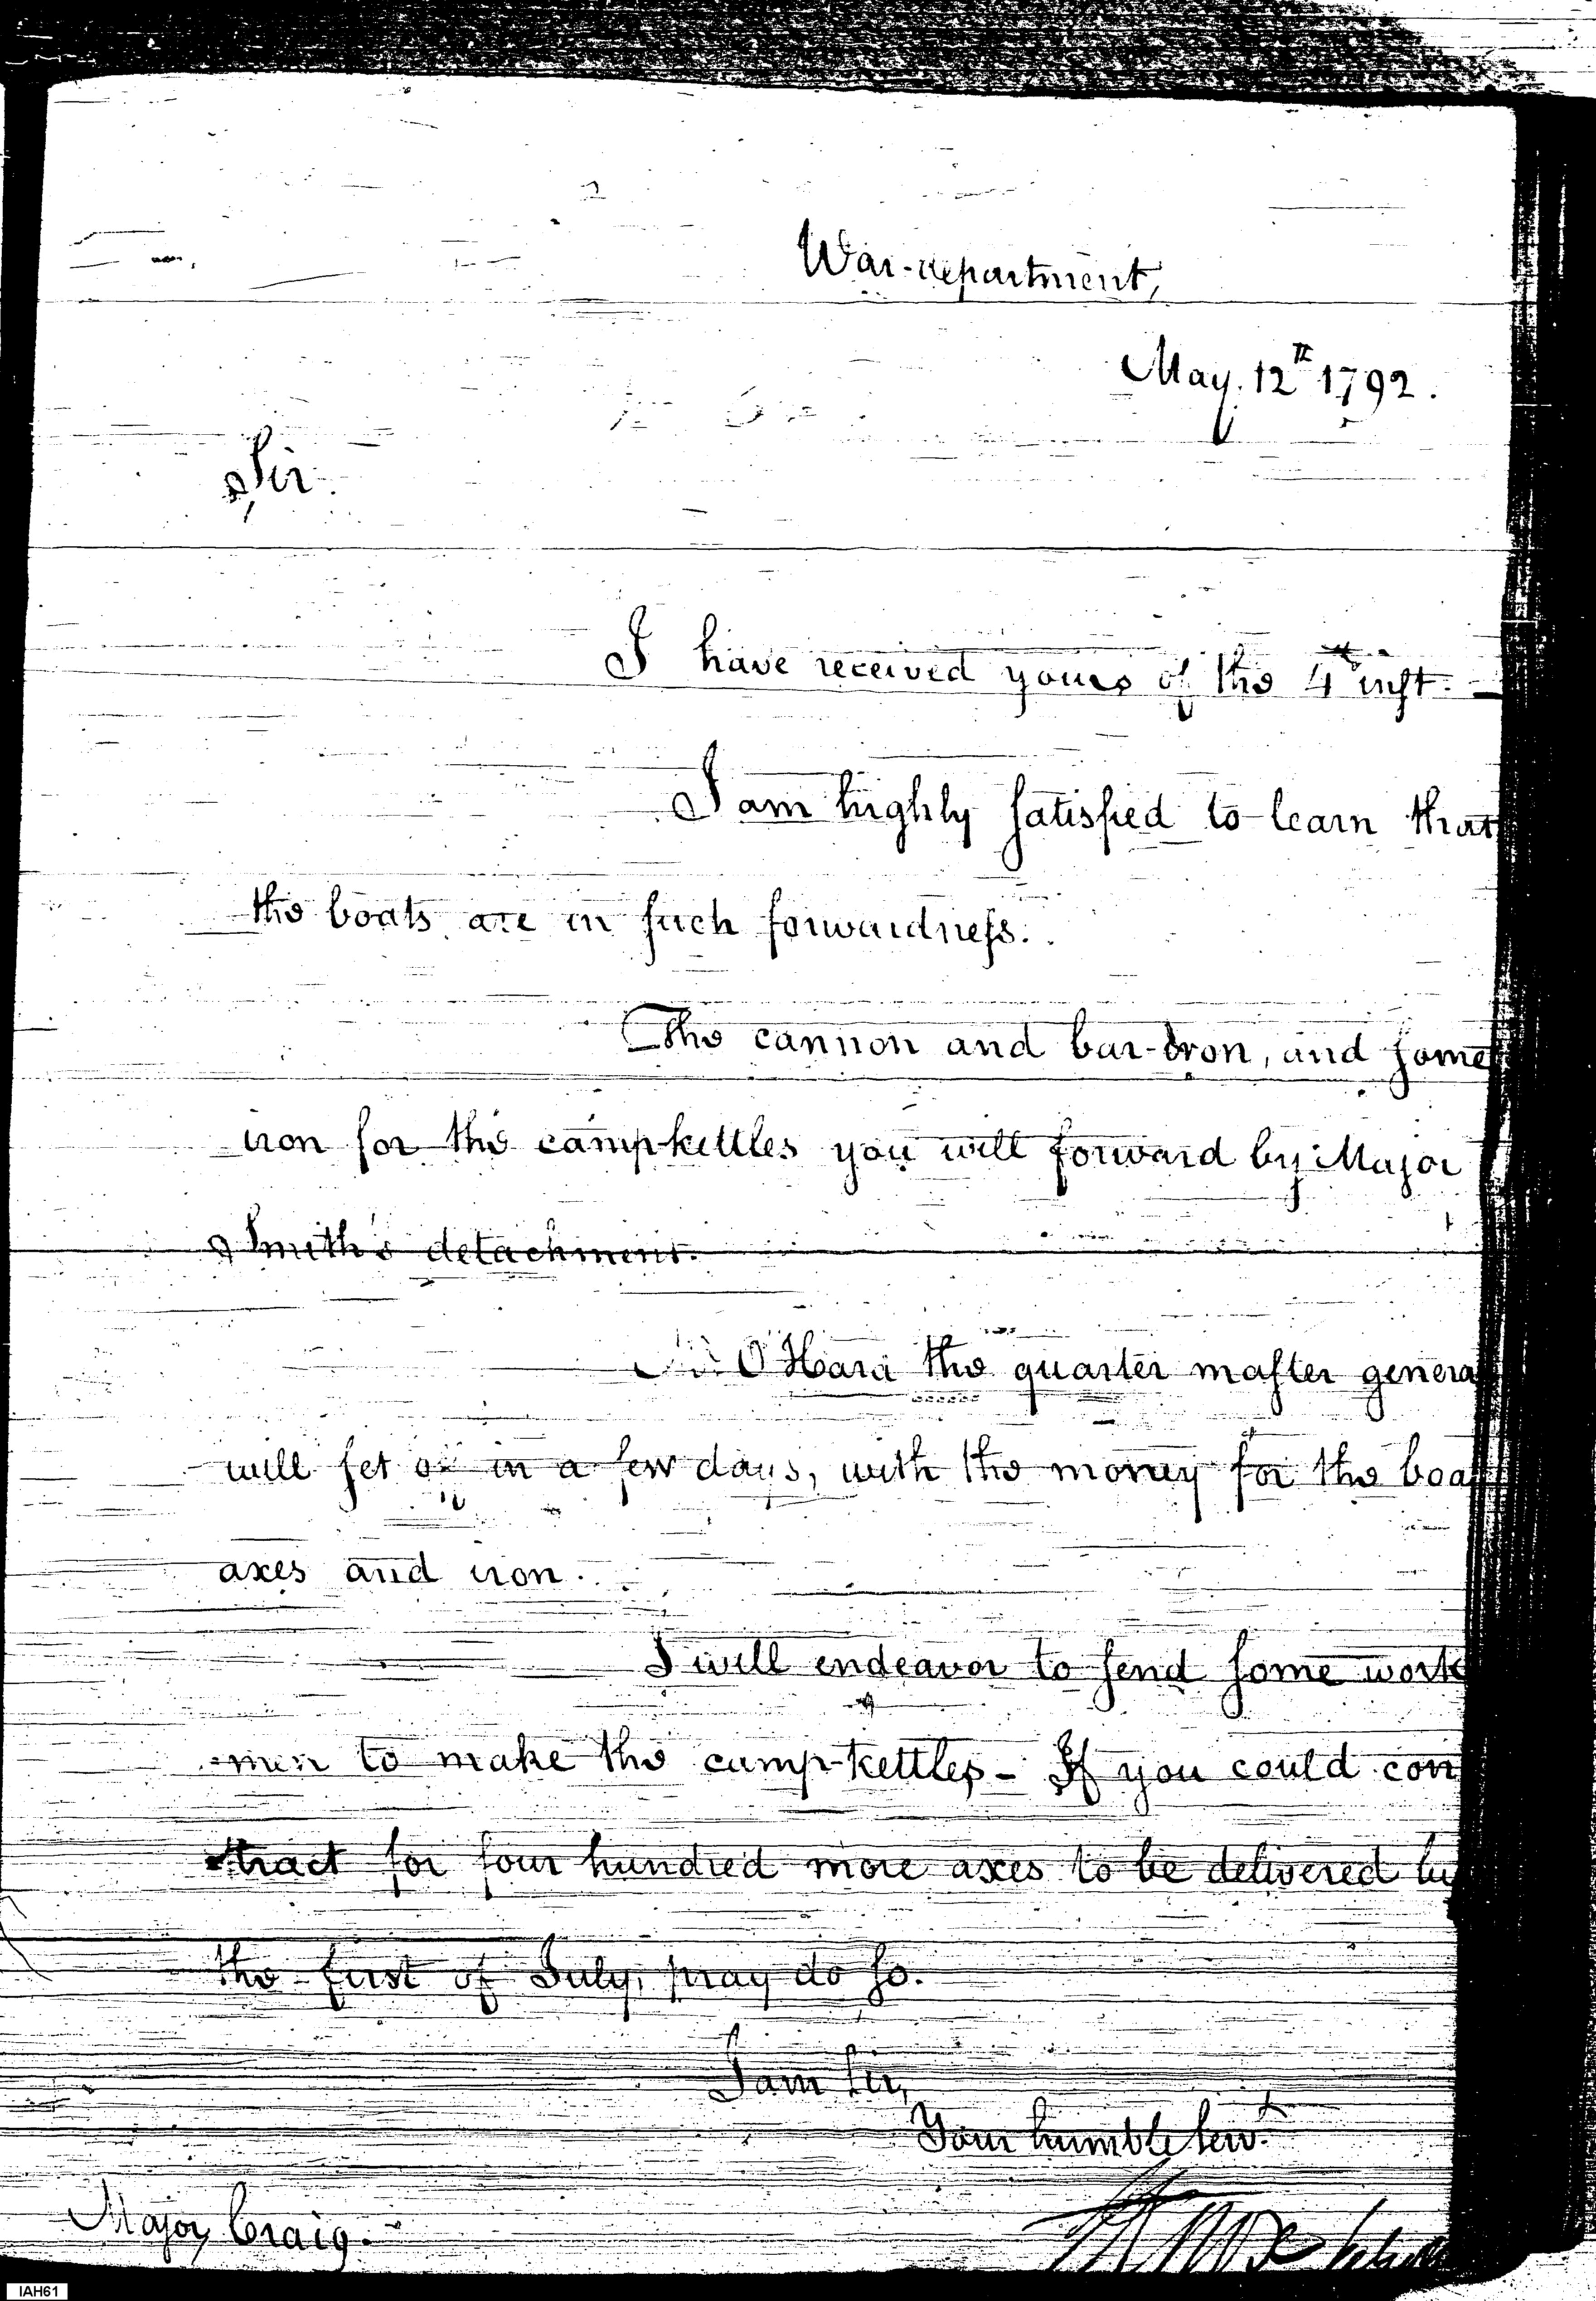 War-department,
May. 12th 1792.
Sir.
I have received yours of the 4th inst.
I am highly satisfied to learn that
the boats are in such forwardness.
The cannon and bar-iron, and some
iron for the camp kettles you will forward by Major
Smith's detachment.
O'Hara the quarter master genera
will set in a few days, with the money for the boa
axes and iron.
I will endeavor to send some work
men to make the camp-kettles - If you could con
tract for four hundred more axes to be delivered by
the first of July, pray do so.
I am Sir,
Your humble servt.
Major Craig.
IAH61